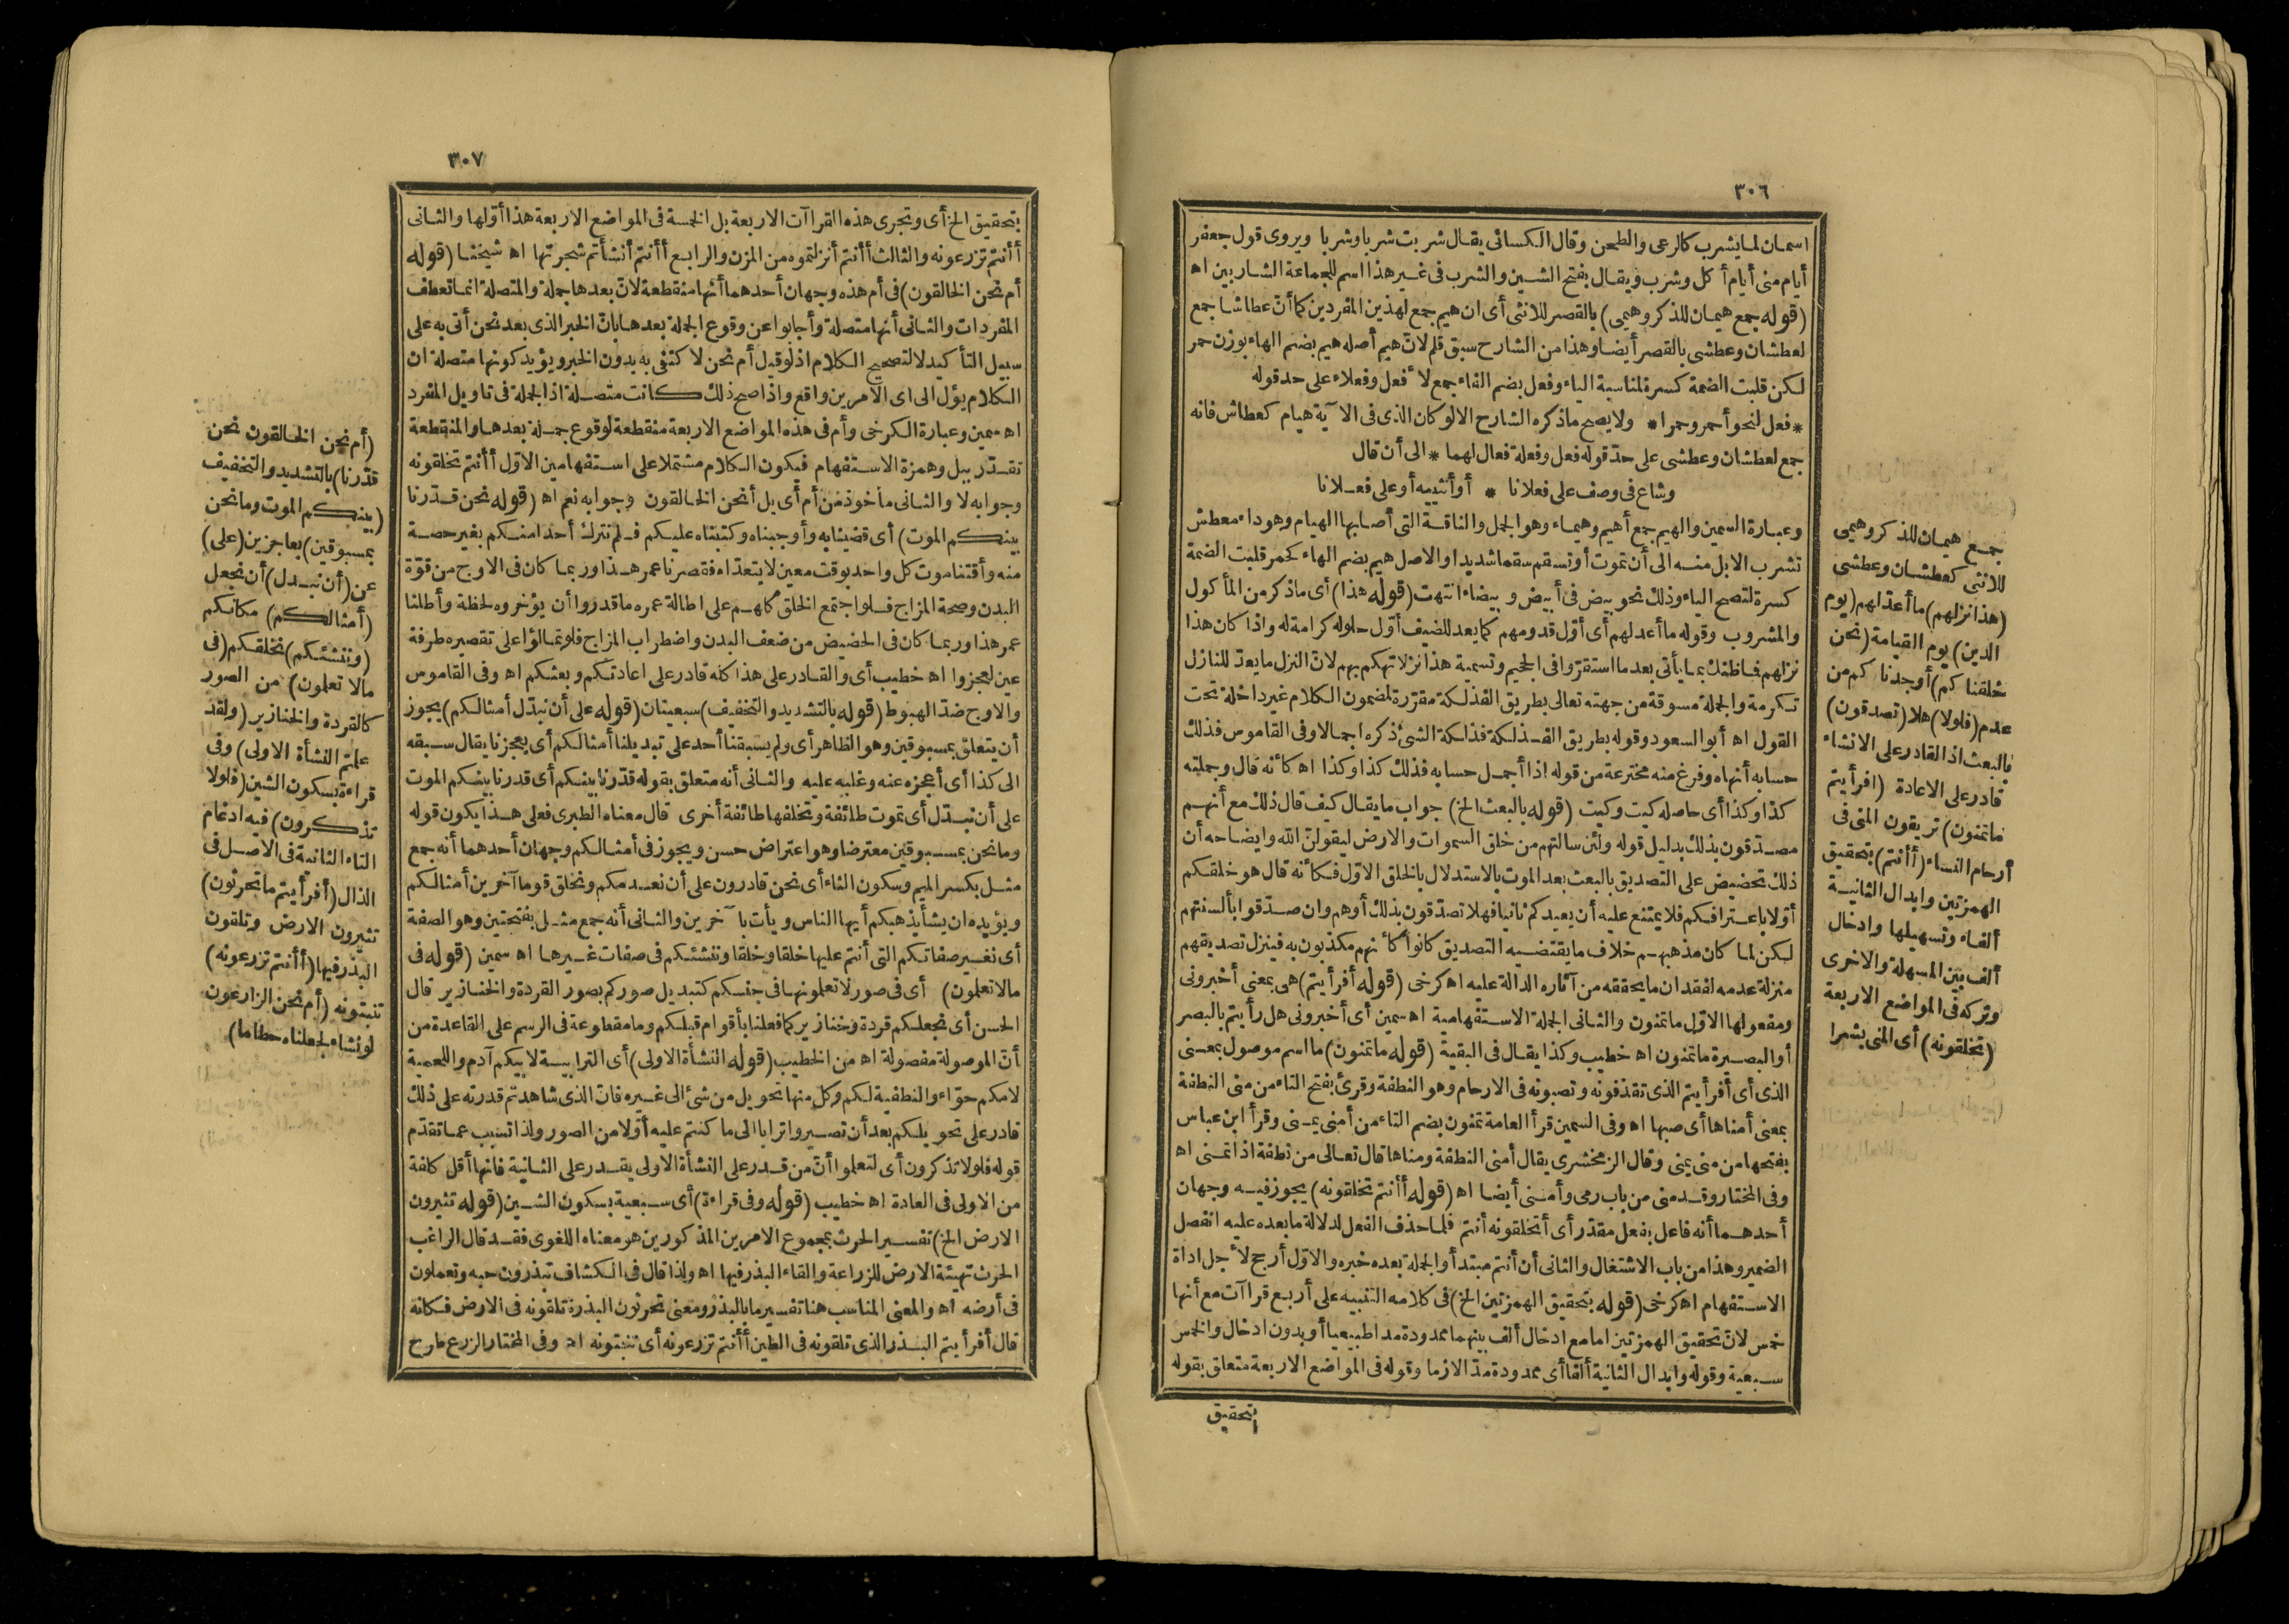 ٣٠٦
اسمان لما يشرب كالرعى والطحن وقال الكسائى يقال شربت شربا وشربا ويروى قول جعفر
أيام منى أيام أكل وشرب ويقال بفتح الشين والشرب فى غير هذا اسم للجماعة الشاربين اه
(قوله جمع هيمان للذكر وهيمى) بالقصر للانثى أى ان هيم جمع لهذين المفردين كما أن عطاشا جمع
لعطشان وعطشى بالقصر أيضا وهذا من الشارح سبق قلم لانّ هيم أصله هيم بضم الهاء بوزن حمر
لكن قلبت الضمة كسرة لمناسبة الياء وفعل بضم الفاء جمع لأفعل وفعلاء على حد قوله
* فعل لنحو أحمر وحمرا * ولا يصح ما ذكره الشارح الا لو كان الذى فى الآية هيام كعطاش فانه
جمع لعطشان وعطشى على حدّ قوله فعل وفعلة فعال لهما * الى أن قال
وشاع فى وصف على فعلانا * أو أنثييه أو على فعلانا
وعبارة السمين والهيم جمع أهيم وهيماء وهو الجمل والناقة التى أصابها الهيام وهو داء معطش
تشرب الابل منه الى أن تموت أو تسقم سقما شديدا والاصل هيم بضم الهاء كحمر قلبت الضمة
كسرة لتصح الياء وذلك نحو بيض فى أبيض وبيضاء انتهت (قوله هذا) أى ما ذكر من المأكول
والمشروب وقوله ما أعد لهم أى أوّل قدومهم كما يعد للضيف أوّل حلوله كرامة له واذا كان هذا
نزلهم فما ظنك بما يأتى بعد ما استقرّوا فى الجحيم وتسمية هذا نزلا تهكم بهم لانّ النزل ما يعدّ للنازل
تكرمة والجملة مسوقة من جهته تعالى بطريق الفذلكة مقرّرة لمضمون الكلام غير داخلة تحت
القول اه أبو السعود وقوله بطريق الفذلكة فذلكة الشئ ذكره اجمالا وفى القاموس فذلك
حسابه أنهاه وفرغ منه مخترعة من قوله اذا أجمل حسابه فذلك كذا وكذا اه كأنه قال وجملته
كذا وكذا أى حاصله كيت وكيت (قوله بالبعث الخ) جواب ما يقال كيف قال ذلك مع أنهم
مصدّقون بذلك بدليل قوله ولئن سألتهم من خلق السموات والارض ليقولنّ الله وايضاحه أن
ذلك تحضيض على التصديق بالبعث بعد الموت بالاستدلال بالخلق الاوّل فكأنه قال هو خلقكم
أوّلا باعترافكم فلا يمتنع عليه أن يعيدكم ثانيا فهلا تصدّقون بذلك أو هم وان صدّقوا بألسنتهم
لكن لما كان مذهبهم خلاف ما يقتضيه التصديق كانوا كأنهم مكذبون به فينزل تصديقهم
منزلة عدمه لفقدان ما يحققه من آثاره الدالة عليه اه كرخى (قوله أفرأيتم) هى بمعنى أخبرونى
ومفعولها الاوّل ما تمنون والثانى الجملة الاستفهامية اه سمين أى أخبرونى هل رأيتم بالبصر
أو البصيرة ما تمنون اه خطيب وكذا يقال فى البقية (قوله ما تمنون) ما اسم موصول بمعنى
الذى أى أفرأيتم الذى تقذفونه وتصبونه فى الارحام وهو النطفة وقرئ بفتح التاء من منى النطفة
بمعنى أمناها أى صبها اه وفى السمين قرأ العامة تمنون بضم التاء من أمنى يمنى وقرأ ابن عباس
بفتحها من منى يمنى وقال الزمخشرى يقال أمنى النطفة ومناها قال تعالى من نطفة اذا تمنى اه
وفى المختار وقد منى من باب رمى وأمنى أيضا اه (قوله أأنتم تخلقونه) يجوز فيه وجهان
أحدهما أنه فاعل بفعل مقدّر أى أتخلقونه أنتم فلما حذف الفعل لدلالة ما بعده عليه انفصل
الضمير وهذا من باب الاشتغال والثانى أن أنتم مبتدأ والجملة بعده خبره والاوّل أرجح لأجل اداة
الاستفهام اه كرخى (قوله بتحقيق الهمزتين الخ) فى كلامه التنبيه على أربع قراآت مع أنها
خمس لانّ تحقيق الهمزتين اما مع ادخال ألف بينهما ممدودة مدا طبيعيا أو بدون ادخال والخمس
سبعية وقوله وابدال الثانية ألفا أى ممدودة مدّا لازما وقوله فى المواضع الاربعة متعلق بقوله
بتحقيق
جمع هيمان للذكر وهيمى
للانثى كعطشان وعطشى
(هذا نزلهم) ما أعدّ لهم (يوم
الدين) يوم القيامة (نحن
خلقناكم) أوجدناكم من
عدم (فلولا) هلا (تصدقون)
بالبعث اذ القادر على الانشاء
قادر على الاعادة (افرأيتم
ما تمنون) تريقون المنى فى
أرحام النساء (أأنتم) بتحقيق
الهمزتين وابدال الثانية
ألفاء وتسهيلها وادخال
ألف بين المسهلة والاخرى
وتركه فى المواضع الاربعة
(تخلقونه) أى المنى بشرا
٣٠٧
بتحقيق الخ أى وتجرى هذه القراآت الاربعة بل الخمسة فى المواضع الاربعة هذا أوّلها والثانى
أأنتم تزرعونه والثالث أأنتم أنزلتموه من المزن والرابع أأنتم أنشأتم شجرتها اه شيخنا (قوله
أم نحن الخالقون) فى أم هذه وجهان أحدهما أنها منقطعة لانّ بعدها جملة والمتصلة انما تعطف
المفردات والثانى أنها متصلة وأجابوا عن وقوع الجملة بعدها بانّ الخبر الذى بعد نحن أتى به على
سبيل التأكيد لا لتصحيح الكلام اذ لو قيل أم نحن لاكتفى به بدون الخبر ويؤيد كونها متصلة ان
الكلام يؤل الى اى الامرين واقع واذا صح ذلك كانت متصلة اذ الجملة فى تاويل المفرد
اه سمين وعبارة الكرخى وأم فى هذه المواضع الاربعة منقطعة لوقوع جملة بعدها والمنقطعة
تقدّر ببل وهمزة الاستفهام فيكون الكلام مشتملا على استفهامين الاوّل أأنتم تخلقونه
وجوابه لا والثانى مأخوذ من أم أى بل أنحن الخالقون وجوابه نعم اه (قوله نحن قدّرنا
بينكم الموت) أى قضينا به وأوجبناه وكتبناه عليكم فلم نترك أحدا منكم بغير حصة
منه وأقتنا موت كل واحد بوقت معين لا يتعدّاه فقصرنا عمر هذا وربما كان فى الاوج من قوّة
البدن وصحة المزاج فلو اجتمع الخلق كلهم على اطالة عمره ما قدروا أن يؤخروه لحظة وأطلنا
عمر هذا وربما كان فى الحضيض من ضعف البدن واضطراب المزاج فلو تمالؤا على تقصيره طرفة
عين لعجزوا اه خطيب أى والقادر على هذا كله قادر على اعادتكم وبعثكم اه وفى القاموس
والاوج ضدّ الهبوط (قوله بالتشديد والتخفيف) سبعيتان (قوله على أن نبدّل أمثالكم) يجوز
أن يتعلق بمسبوقين وهو الظاهر أى ولم يسبقنا أحد على تبديلنا أمثالكم أى يعجزنا يقال سبقه
الى كذا أى أعجزه عنه وغلبه عليه والثانى أنه متعلق بقوله قدّرنا بينكم أى قدرنا بينكم الموت
على أن نبدّل أى تموت طائفة وتخلفها طائفة أخرى قال معناه الطبرى فعلى هذا يكون قوله
وما نحن بمسبوقين معترضا وهو اعتراض حسن ويجوز فى أمثالكم وجهان أحدهما أنه جمع
مثل بكسر الميم وسكون الثاء أى نحن قادرون على أن نعدمكم ونخلق قوما آخرين أمثالكم
ويؤيده ان يشأ يذهبكم أيها الناس ويأت بآخرين والثانى أنه جمع مثل بفتحتين وهو الصفة
أى نغير صفاتكم التى أنتم عليها خلقا وخلقا وننشئكم فى صفات غيرها اه سمين (قوله فى
مالا تعلمون) أى فى صور لا تعلمونها فى جنسكم كتبديل صوركم بصور القردة والخنازير قال
الحسن أى نجعلكم قردة وخنازير كما فعلنا بأقوام قبلكم وما مقطوعة فى الرسم على القاعدة من
أنّ الموصولة مفصولة اه من الخطيب (قوله النشأة الاولى) أى الترابية لابيكم آدم واللحمية
لامكم حوّاء والنطفية لكم وكل منها تحويل من شئ الى غيره فان الذى شاهدتم قدرته على ذلك
قادر على تحويلكم بعد أن تصيروا ترابا الى ما كنتم عليه أوّلا من الصور ولذا تسبب عما تقدّم
قوله فلولا تذكرون أى لتعلموا أنّ من قدر على النشأة الاولى يقدر على الثانية فانها أقل كلفة
من الاولى فى العادة اه خطيب (قوله وفى قراءة) أى سبعية بسكون الشين (قوله تثيرون
الارض الخ) تفسير الحرث بمجموع الامرين المذكورين هو معناه اللغوى فقد قال الراغب
الحرث تهيئة الارض للزراعة والقاء البذر فيها اه ولذا قال فى الكشاف تبذرون حبه وتعملون
فى أرضه اه والمعنى المناسب هنا تفسير ما بالبذر ومعنى تحرثون البذرة تلقونه فى الارض فكانه
قال أفرأيتم البذر الذى تلقونه فى الطين أأنتم تزرعونه أى تنبتونه اه وفى المختار الزرع طرح
(أم نحن الخالقون نحن
قدّرنا) بالتشديد والتخفيف
(بينكم الموت وما نحن
بمسبوقين) بعاجزين (على)
عن (أن نبدل) أن نجعل
(أمثالكم) مكانكم
(وننشئكم) نخلقكم (فى
مالا تعلمون) من الصور
كالقردة والخنازير (ولقد
علمتم النشأة الاولى) وفى
قراءة بسكون الشين (فلولا
تذكرون) فيه ادغام
التاء الثانية فى الاصل فى
الذال (أفرأيتم ما تحرثون)
تثيرون الارض وتلقون
البذر فيها (أأنتم تزرعونه)
تنبتونه (أم نحن الزارعون
لو نشاء لجعلناه حطاما)